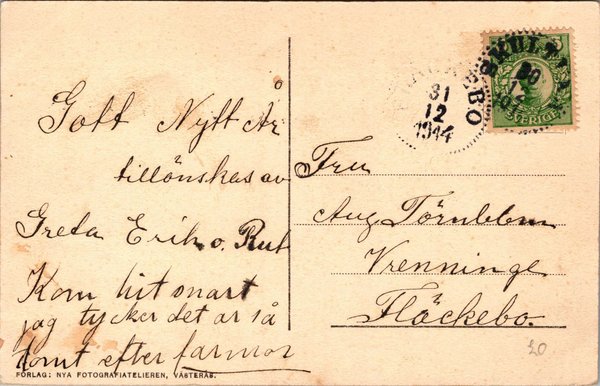 Gott Nytt År
tillönskas av
Greta Erik o. Rut
Kom hit snart
jag tycker det är så
tomt efter farmor
FÖRLAG: NYA FOTOGRAFIATELIEREN, VÄSTERÅS.
SKULTUNA
30
SVERIGE
31
12
1914
Fru
Aug Törnblom
Vrenninge
Fläckebo.
20